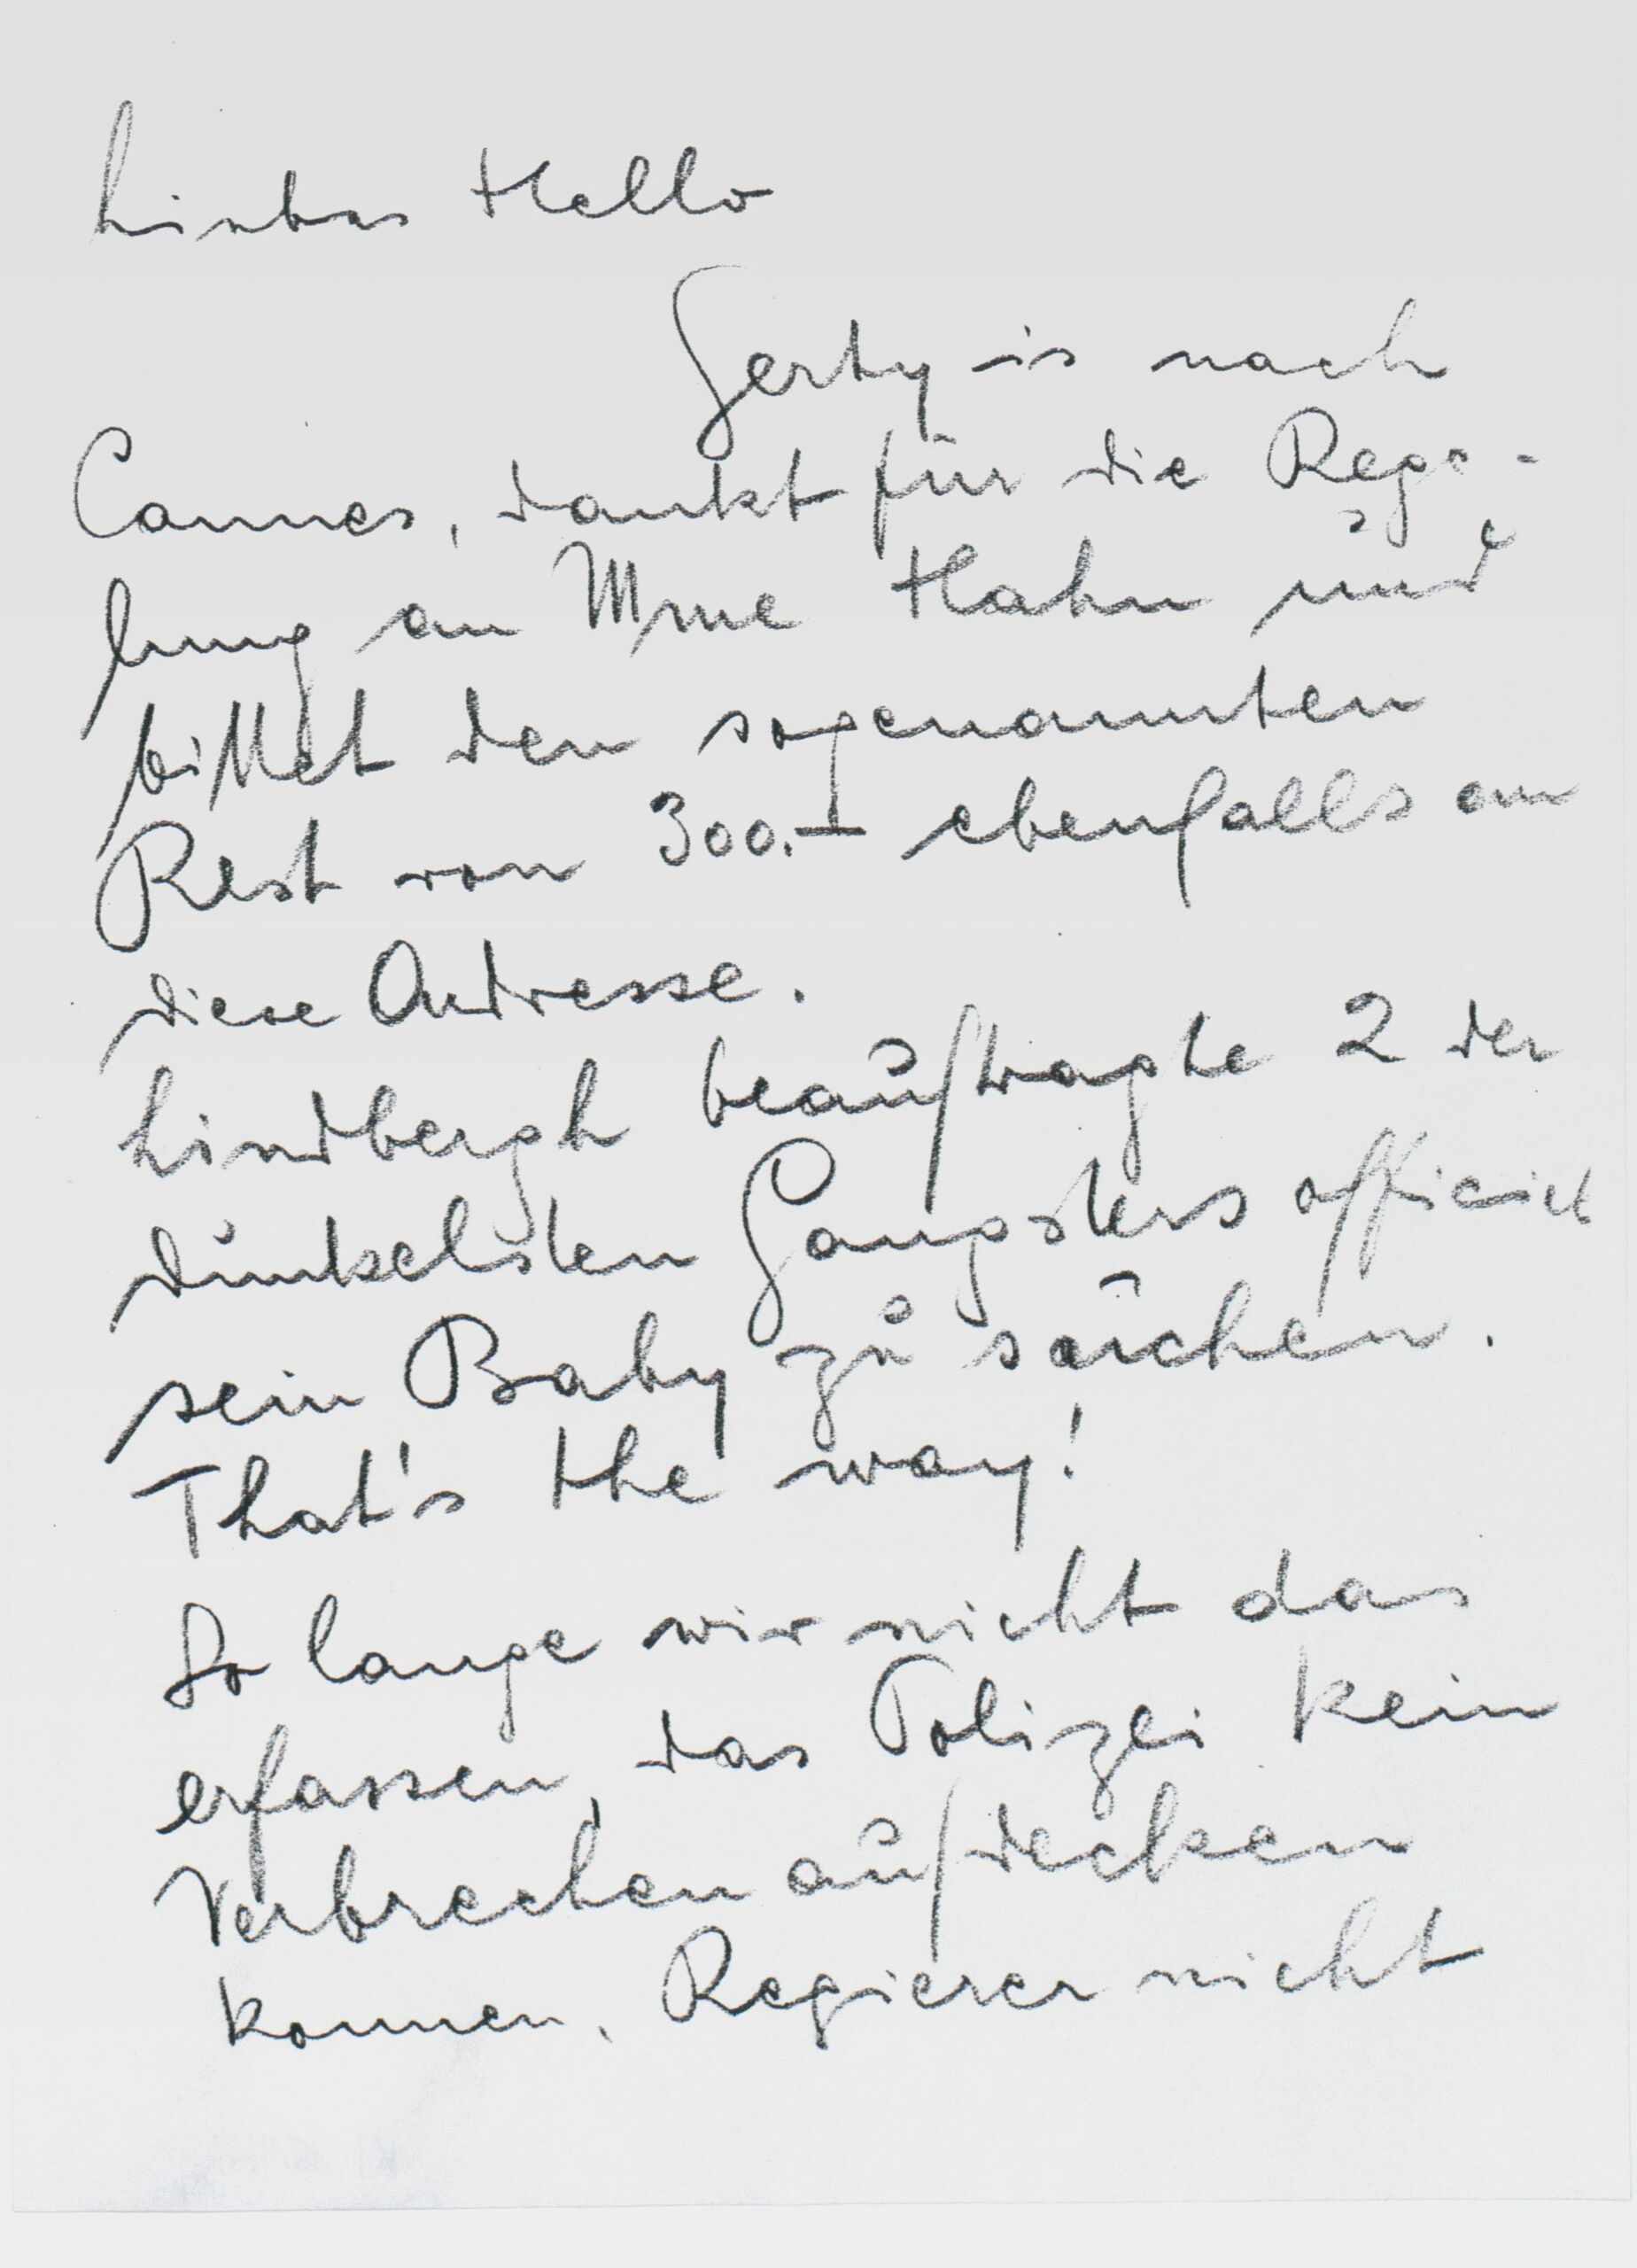 Liebes Hello
Gerty is nach
Cannes, dankt für die Rege-
lung an Mme Hahn und
bittet den sogenannten
Rest von 300.– ebenfalls an
diese Andresse.
Lindbergh beauftragte 2 der
dunkelsten Gangsters officiel
sein Baby zu suchen.
That's the way!
So lange wir nicht das
erfassen, das Polizei kein
Verbrechen aufdecken
konnen, Regierer nicht